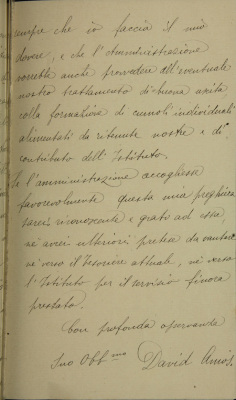 sempre che io faccia il mio
dovere, e che l'Amministrazione
vorrebbe anche provvedere all'eventuale
nostro trattamento di buona uscita,
colla formazione di cumuli individuali
alimentati da ritenute nostre e di
contributo dell'Istituto.
Se l'amministrazione accogliesse
favorevolmente questa mia preghiera
sarei riconoscente e grato ad essa,
nè avrei ulteriori pretese da vantare
nè verso il Tesoriere attuale, nè verso
l'Istituto per il servizio finora
prestato.
Con profonda osservanza
Suo Obb.mo David Amos.